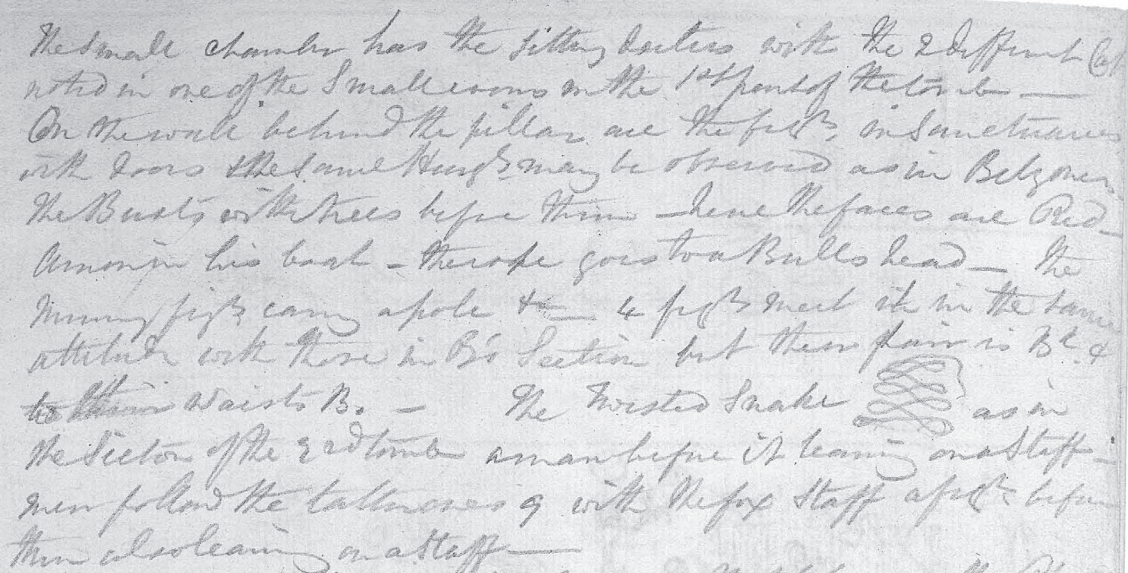 The Small chamber has the sitting deities with the 2 different
noted in one of the Small rooms in the 1st part of the tomb —
On the walls behind the pillar are the figrs. in Sanctuaries
with doors & the same may be observed as in Belzonis
the Busts with trees before them — here the faces are Red —
in his boat — the rope goes to a Bulls head — The
Mummy figrs carry a pole &c — 4 figrs meet it in the same
attitude with those in B's Section but their hair is Bk. &
to their waists B. — The Twisted Snake as in
the Section of the 2nd tomb a man before it leaning on a Staff —
men follow the tall ones 9 with the fox Staff a figr. before
them also leaning on a Staff —